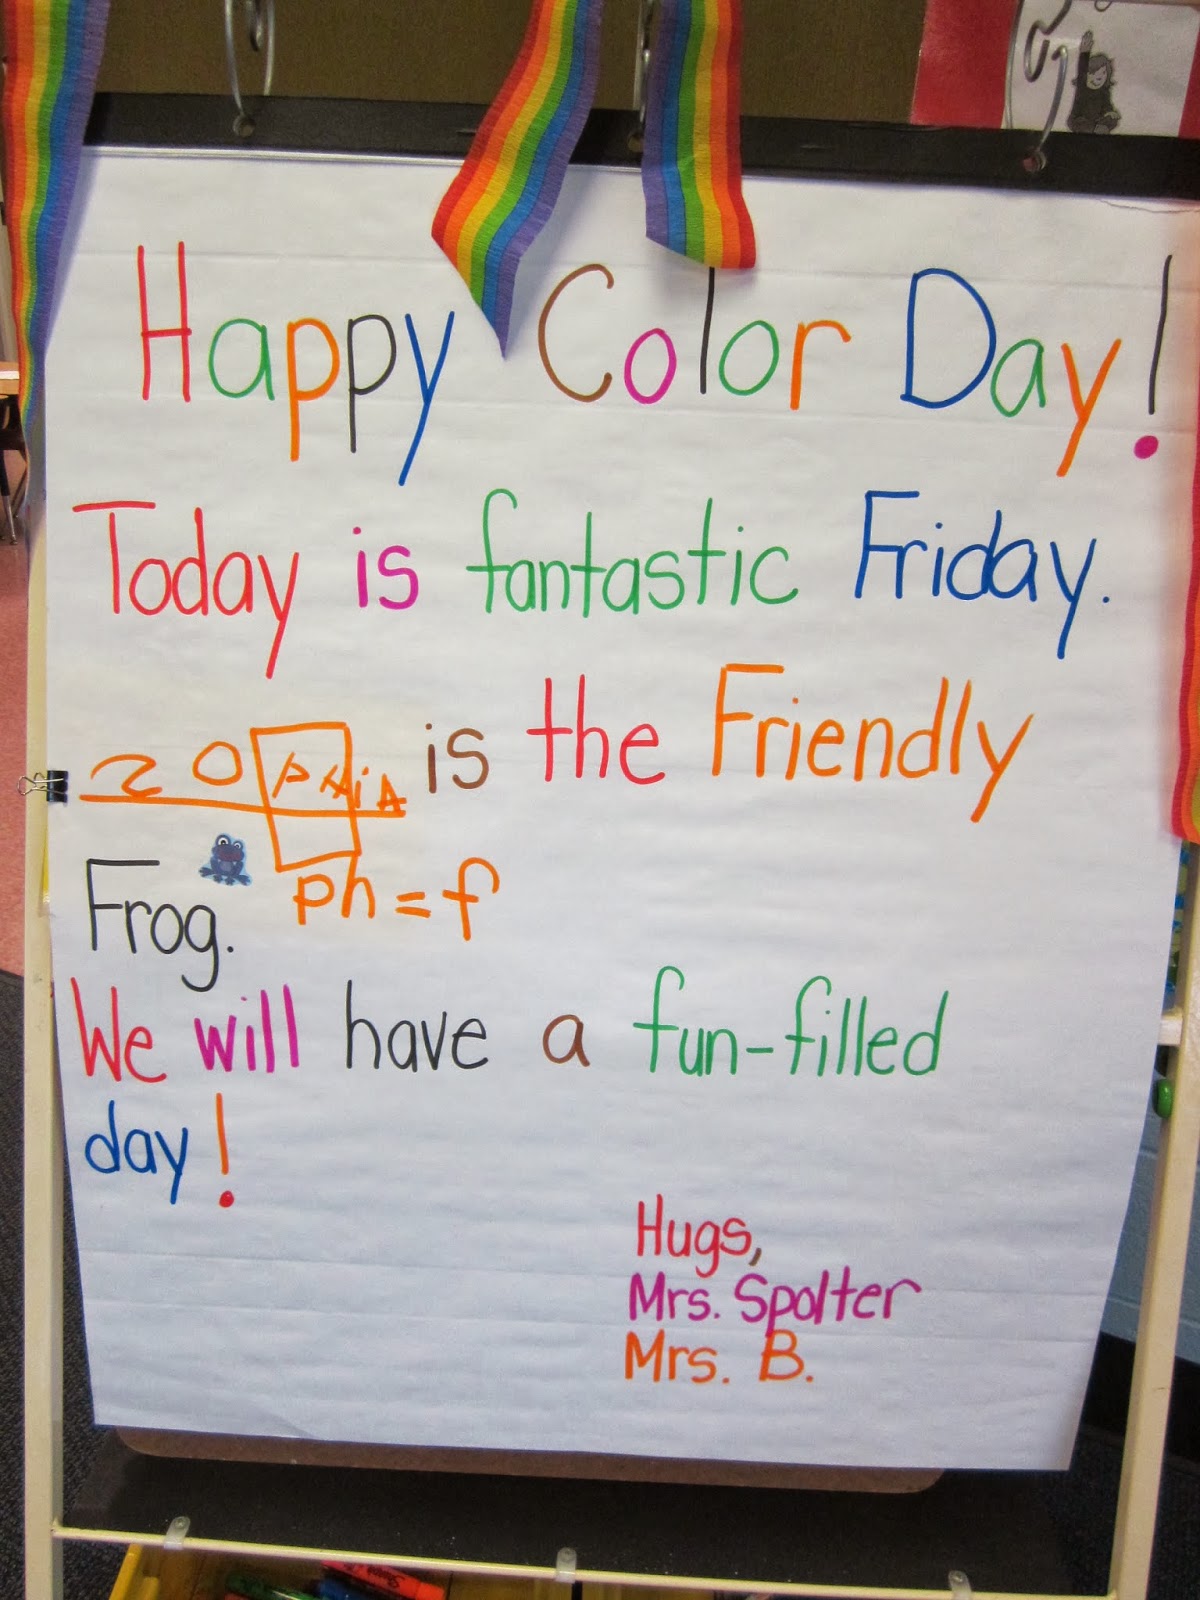 Happy Color Day!
Today is fantastic Friday.
zOphiA is the Friendly
Frog. ph = f
We will have a fun-filled
day!
Hugs,
Mrs. Spolter
Mrs. B.